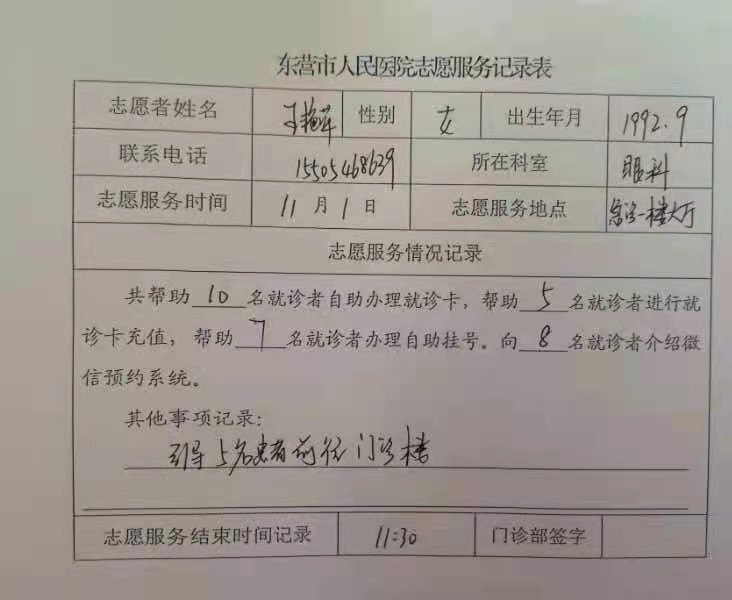 东营市人民医院志愿服务记录表
志愿者姓名 王艳萍 性别 女 出生年月 1992.9
联系电话 15505468639 所在科室 眼科
志愿服务时间 11月1日 志愿服务地点 急诊一楼大厅
志愿服务情况记录
共帮助 10 名就诊者自助办理就诊卡，帮助 5 名就诊者进行就
诊卡充值，帮助 7 名就诊者办理自助挂号。向 8 名就诊者介绍微
信预约系统。
其他事项记录：
引导5名患者前往门诊楼
志愿服务结束时间记录 11:30 门诊部签字